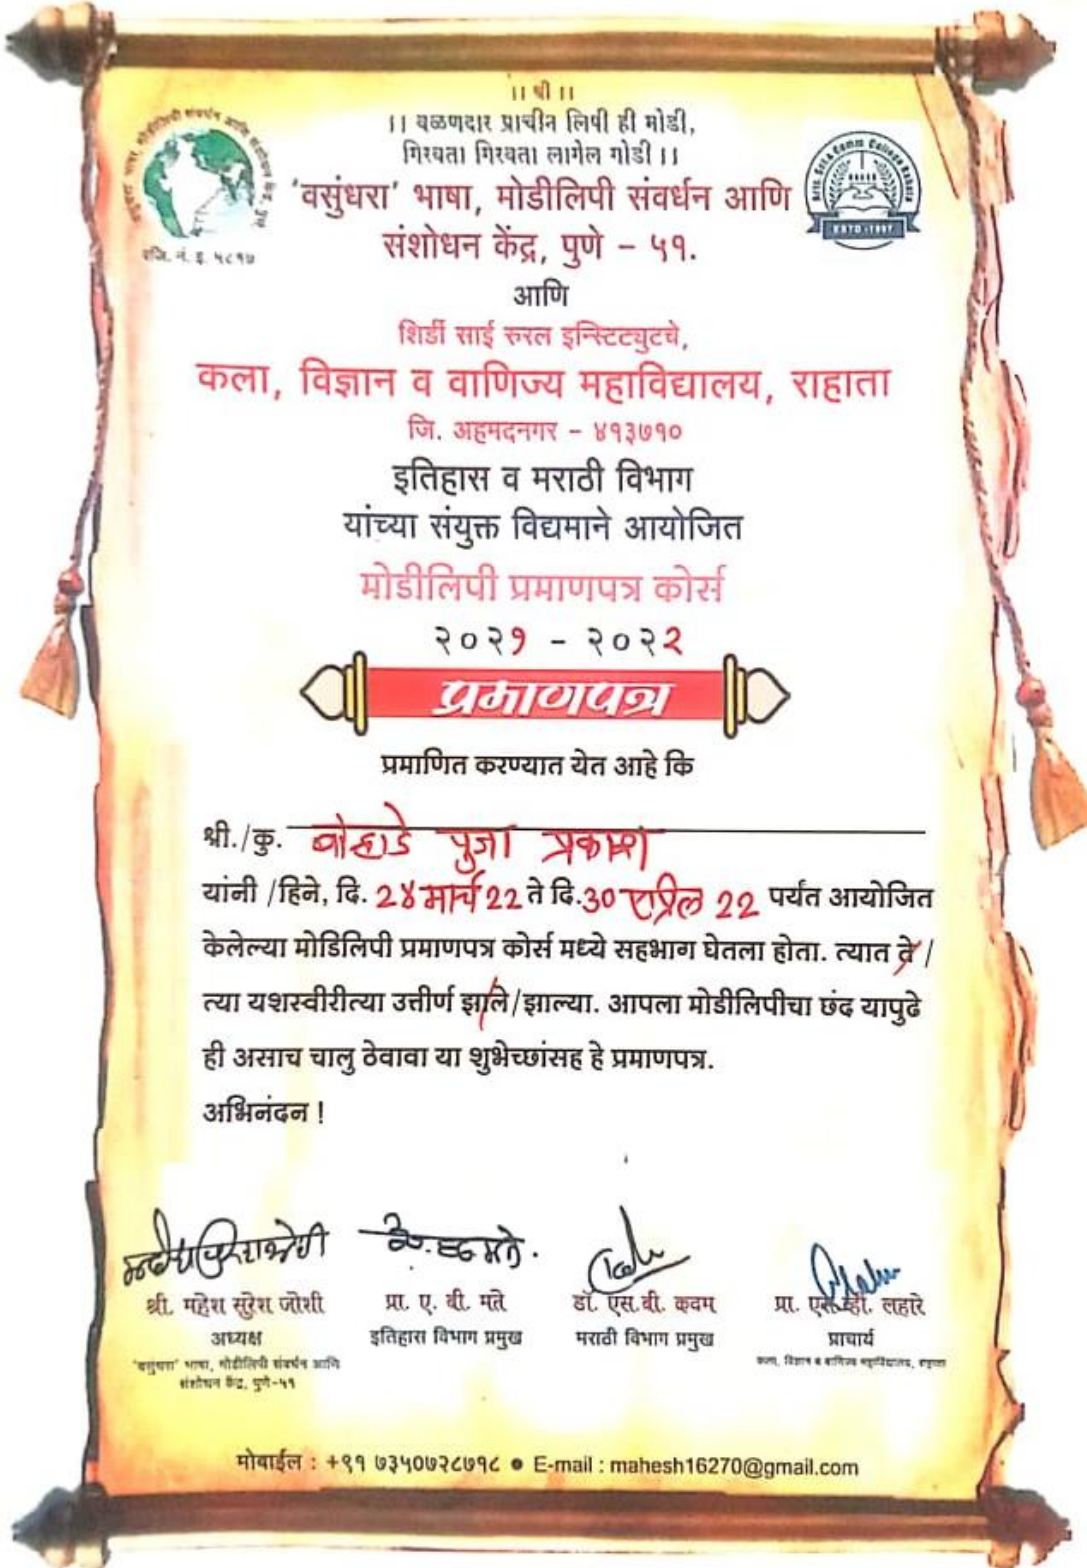 ॥ श्री ॥
॥ वळणदार प्राचीन लिपी ही मोडी,
गिरवता गिरवता लागेल गोडी ॥
'वसुंधरा' भाषा, मोडीलिपी संवर्धन आणि
संशोधन केंद्र, पुणे – ५१.
रजि. नं. इ. ५८१७
ESTD-1997
आणि
शिर्डी साई रुरल इन्स्टिट्युटचे,
कला, विज्ञान व वाणिज्य महाविद्यालय, राहाता
जि. अहमदनगर – ४१३७१०
इतिहास व मराठी विभाग
यांच्या संयुक्त विद्यमाने आयोजित
मोडीलिपी प्रमाणपत्र कोर्स
२०२१ – २०२२
प्रमाणपत्र
प्रमाणित करण्यात येत आहे कि
श्री./कु. पुजा प्रकाश
यांनी /हिने, दि. 24 मार्च 22 ते दि. 30 एप्रिल 22 पर्यंत आयोजित
केलेल्या मोडिलिपी प्रमाणपत्र कोर्स मध्ये सहभाग घेतला होता. त्यात ते /
त्या यशस्वीरीत्या उत्तीर्ण झाले/झाल्या. आपला मोडीलिपीचा छंद यापुढे
ही असाच चालु ठेवावा या शुभेच्छांसह हे प्रमाणपत्र.
अभिनंदन !
श्री. महेश सुरेश जोशी
अध्यक्ष
'वसुंधरा' भाषा, मोडीलिपी संवर्धन आणि
संशोधन केंद्र, पुणे-५१
प्रा. ए. बी. मते
इतिहास विभाग प्रमुख
डॉ. एस.बी. कदम
मराठी विभाग प्रमुख
प्रा. एस.व्ही. लहारे
प्राचार्य
कला, विज्ञान व वाणिज्य महाविद्यालय, राहाता
मोबाईल : +९१ ७३५०७२८७१८ ● E-mail : mahesh16270@gmail.com